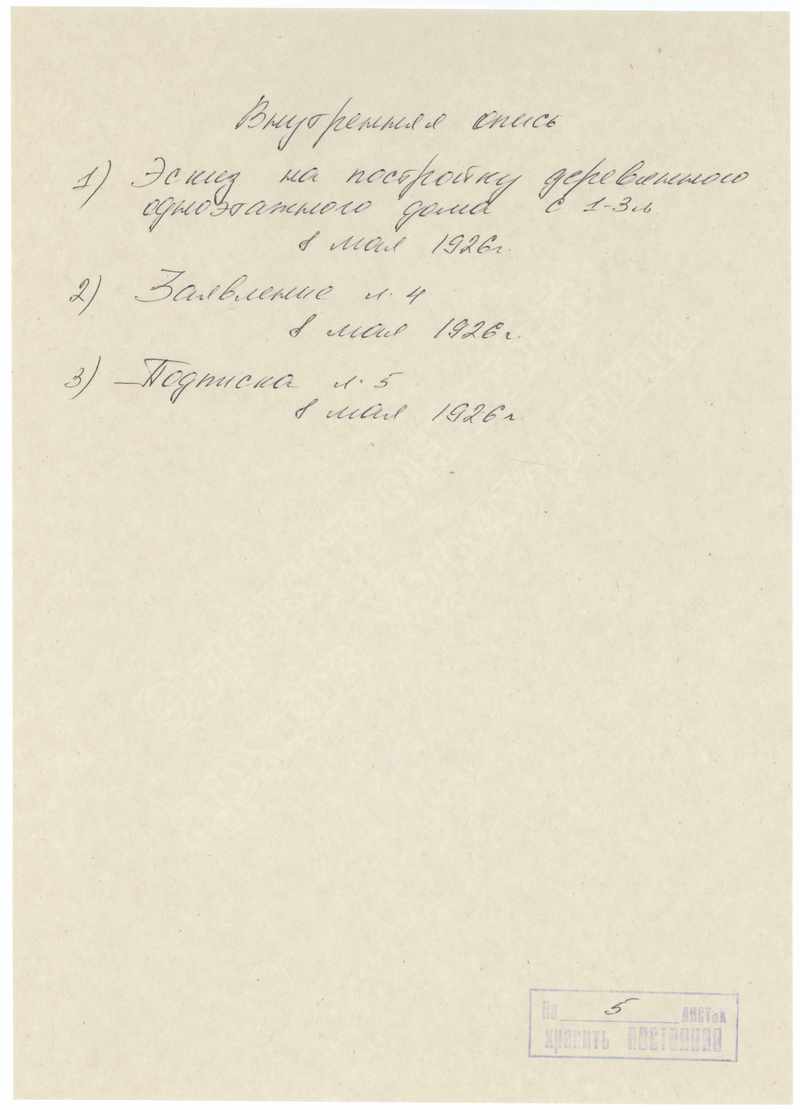 Внутренняя опись
1) Эскиз на постройку деревянного
одноэтажного дома с 1-3 л
8 мая 1926 г.
2) Заявление л. 4
8 мая 1926 г.
3) Подписка л. 5
8 мая 1926 г.
На 5 листах
хранить постоянно